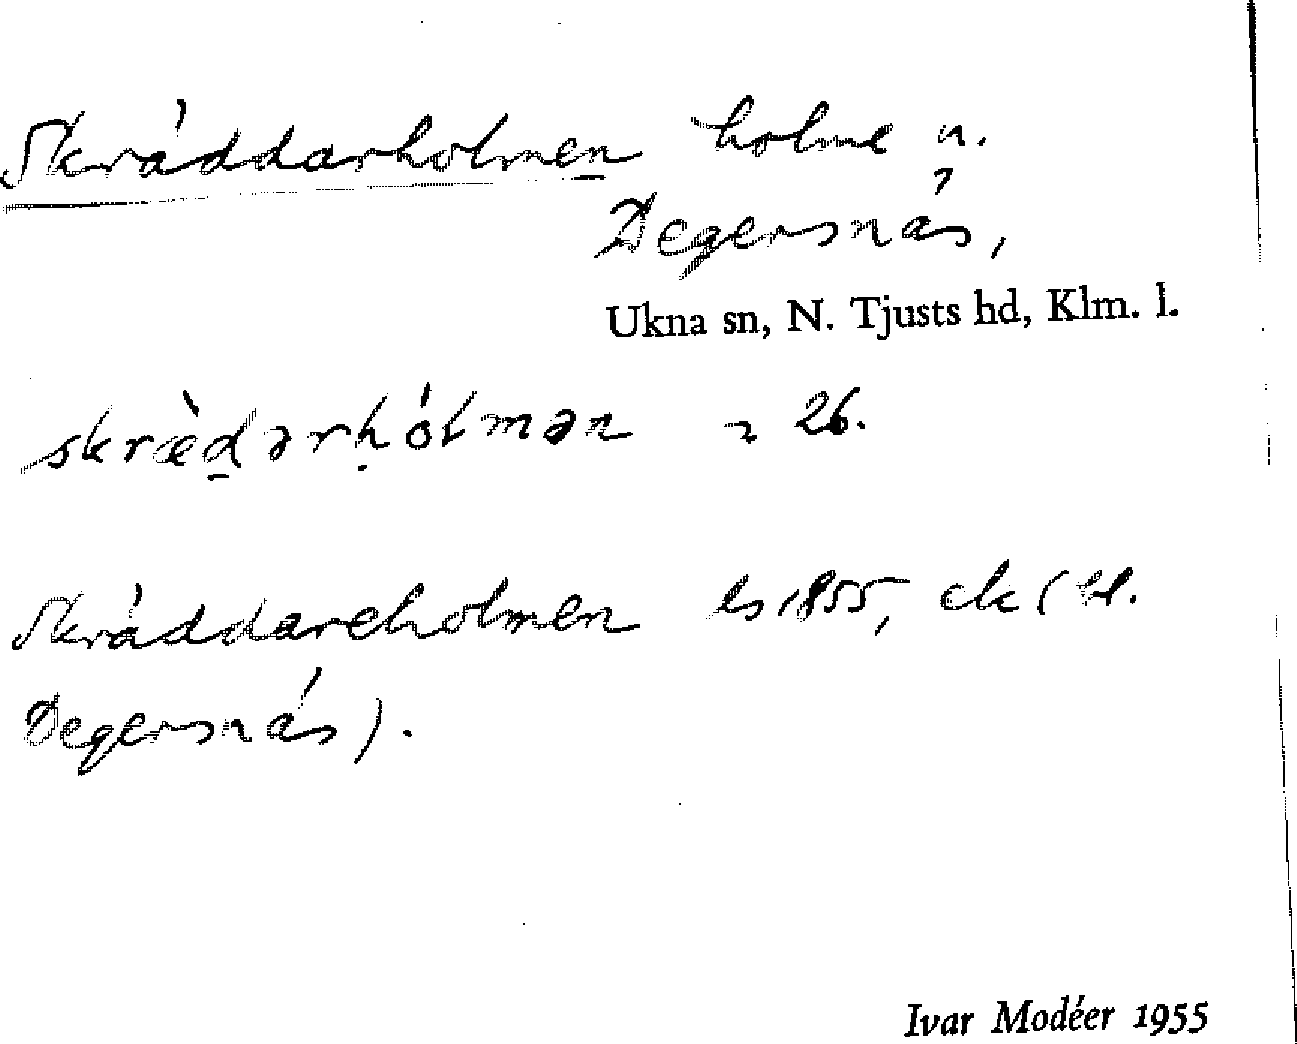 Skräddarholmen holme n.
Degersnäs,
Ukna sn, N. Tjusts hd, Klm. l.
skræ̀dərhólmən 26.
Skräddareholmen ls 1855, ck (
Degersnäs).
Ivar Modéer 1955